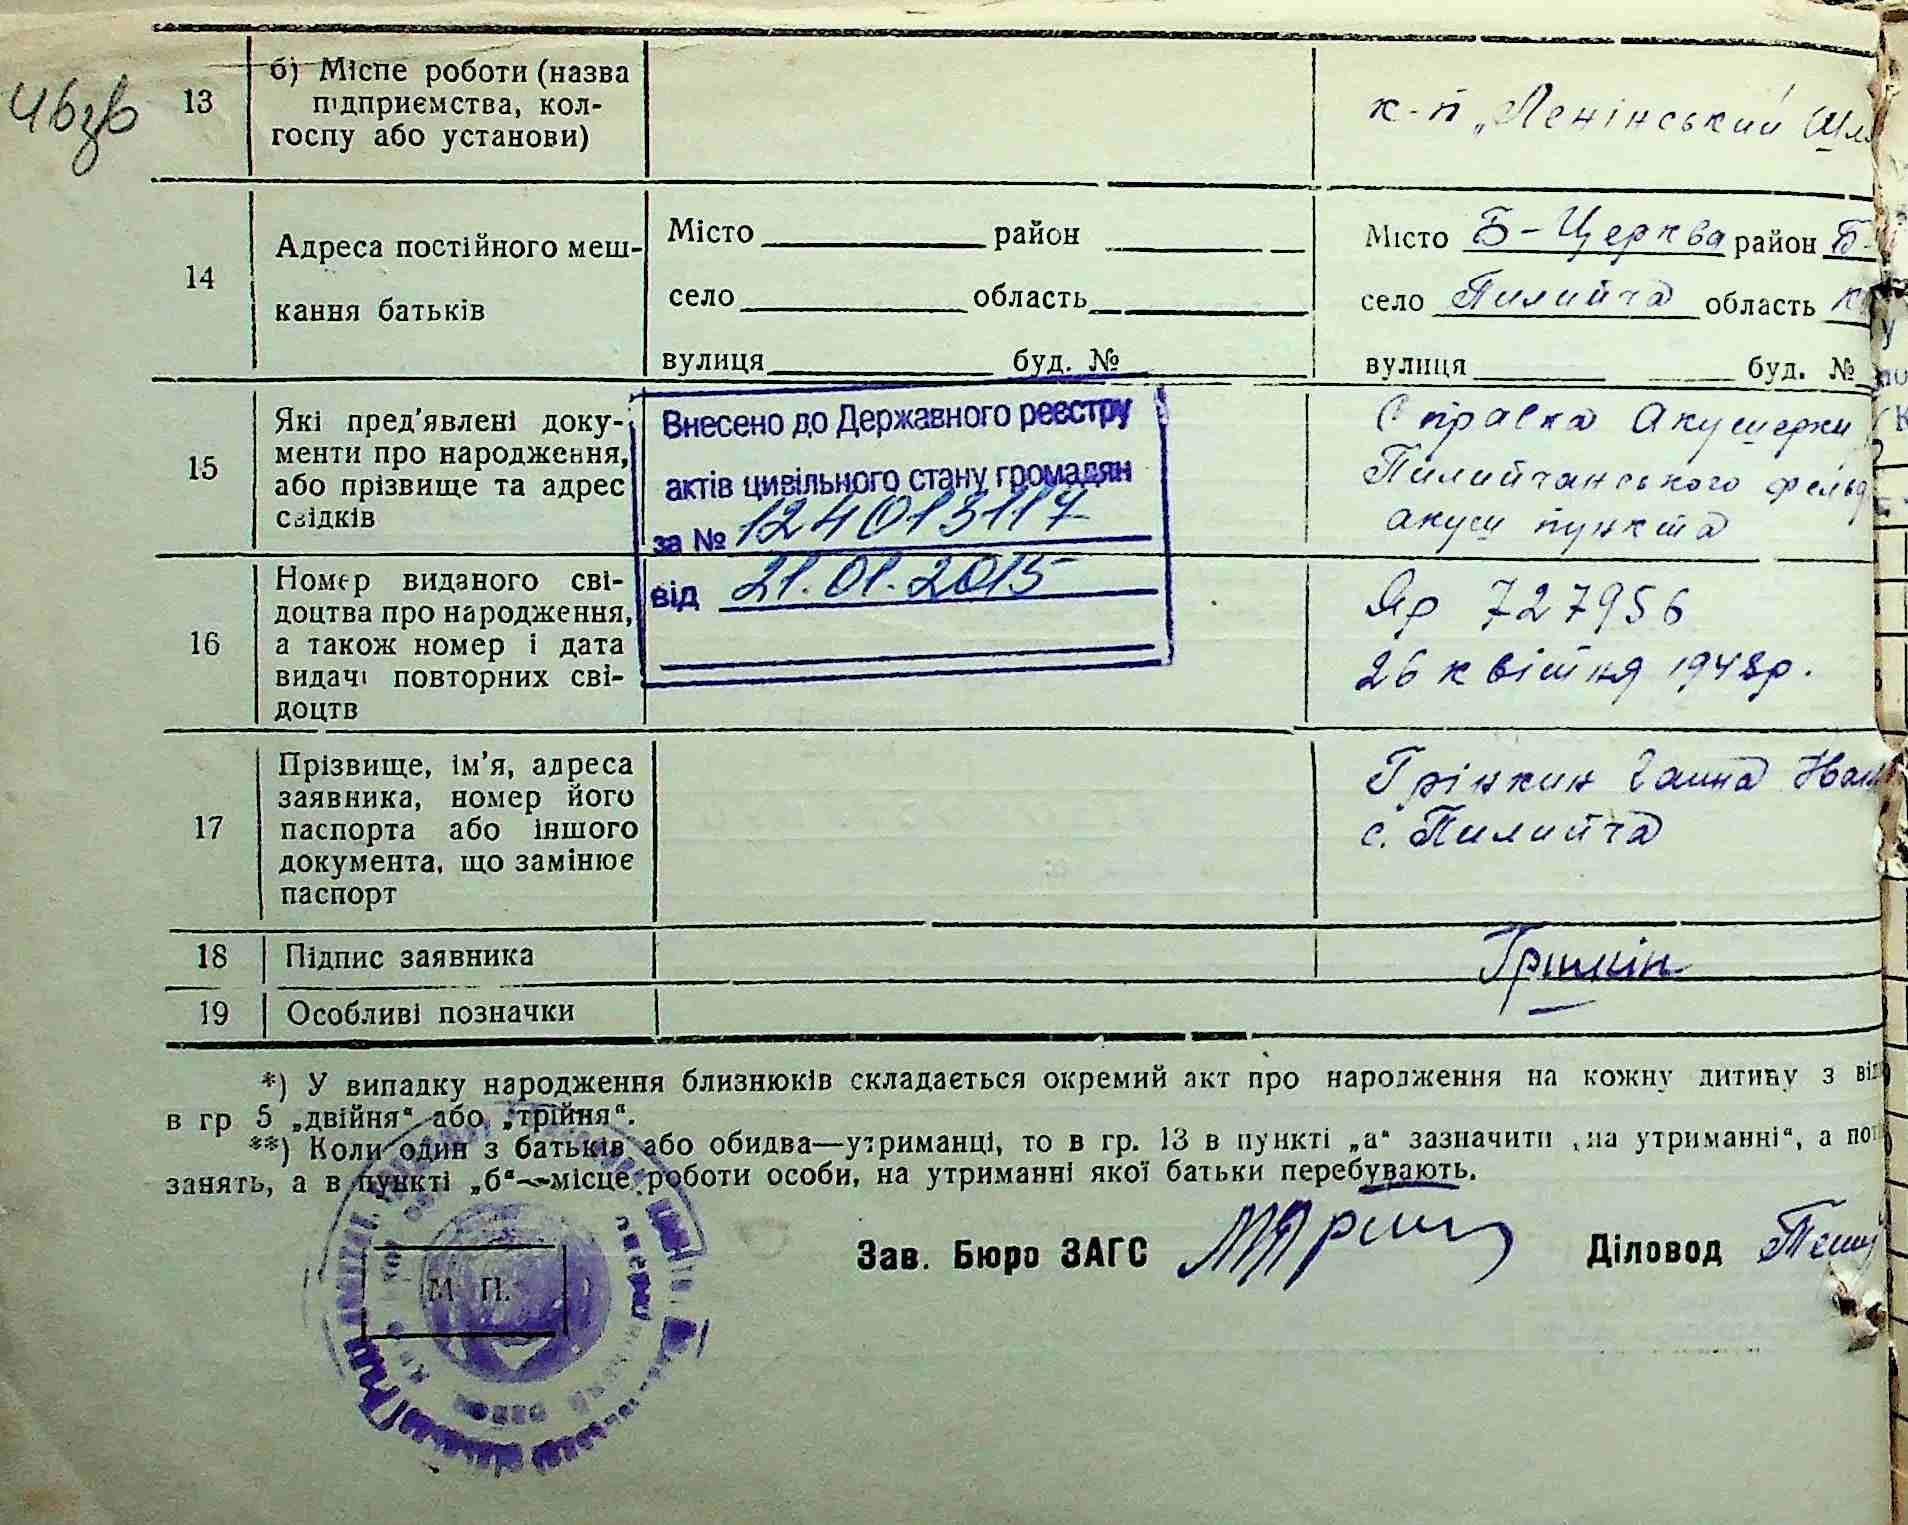 46зв
13
б) Місце роботи (назва
підприємства, кол-
госпу або установи)
к-п „Ленінський Шля
14
Адреса постійного меш-
кання батьків
Місто район
село область
вулиця буд. №
Місто Б-Церква район Б-
село Пилипча область К
вулиця буд. №
15
Які пред'явлені доку-
менти про народження,
або прізвище та адрес
свідків
Справка Акушерки
Пилипчанського фельд
акуш пункта
Внесено до Державного реєстру
актів цивільного стану громадян
за № 124013117
від 21.01.2015
16
Номер виданого сві-
доцтва про народження,
а також номер і дата
видачі повторних сві-
доцтв
727956
26 квітня 1948р.
17
Прізвище, ім'я, адреса
заявника, номер його
паспорта або іншого
документа, що замінює
паспорт
Грінкин Ганна
с. Пилипча
18
Підпис заявника
19
Особливі позначки
*) У випадку народження близнюків складається окремий акт про народження на кожну дитину з від
в гр 5 „двійня“ або „трійня“.
**) Коли один з батьків або обидва—утриманці, то в гр. 13 в пункті „а“ зазначити „на утриманні“, а пот
занять, а в пункті „б“—місце роботи особи, на утриманні якої батьки перебувають.
Зав. Бюро ЗАГС
Діловод
М П.